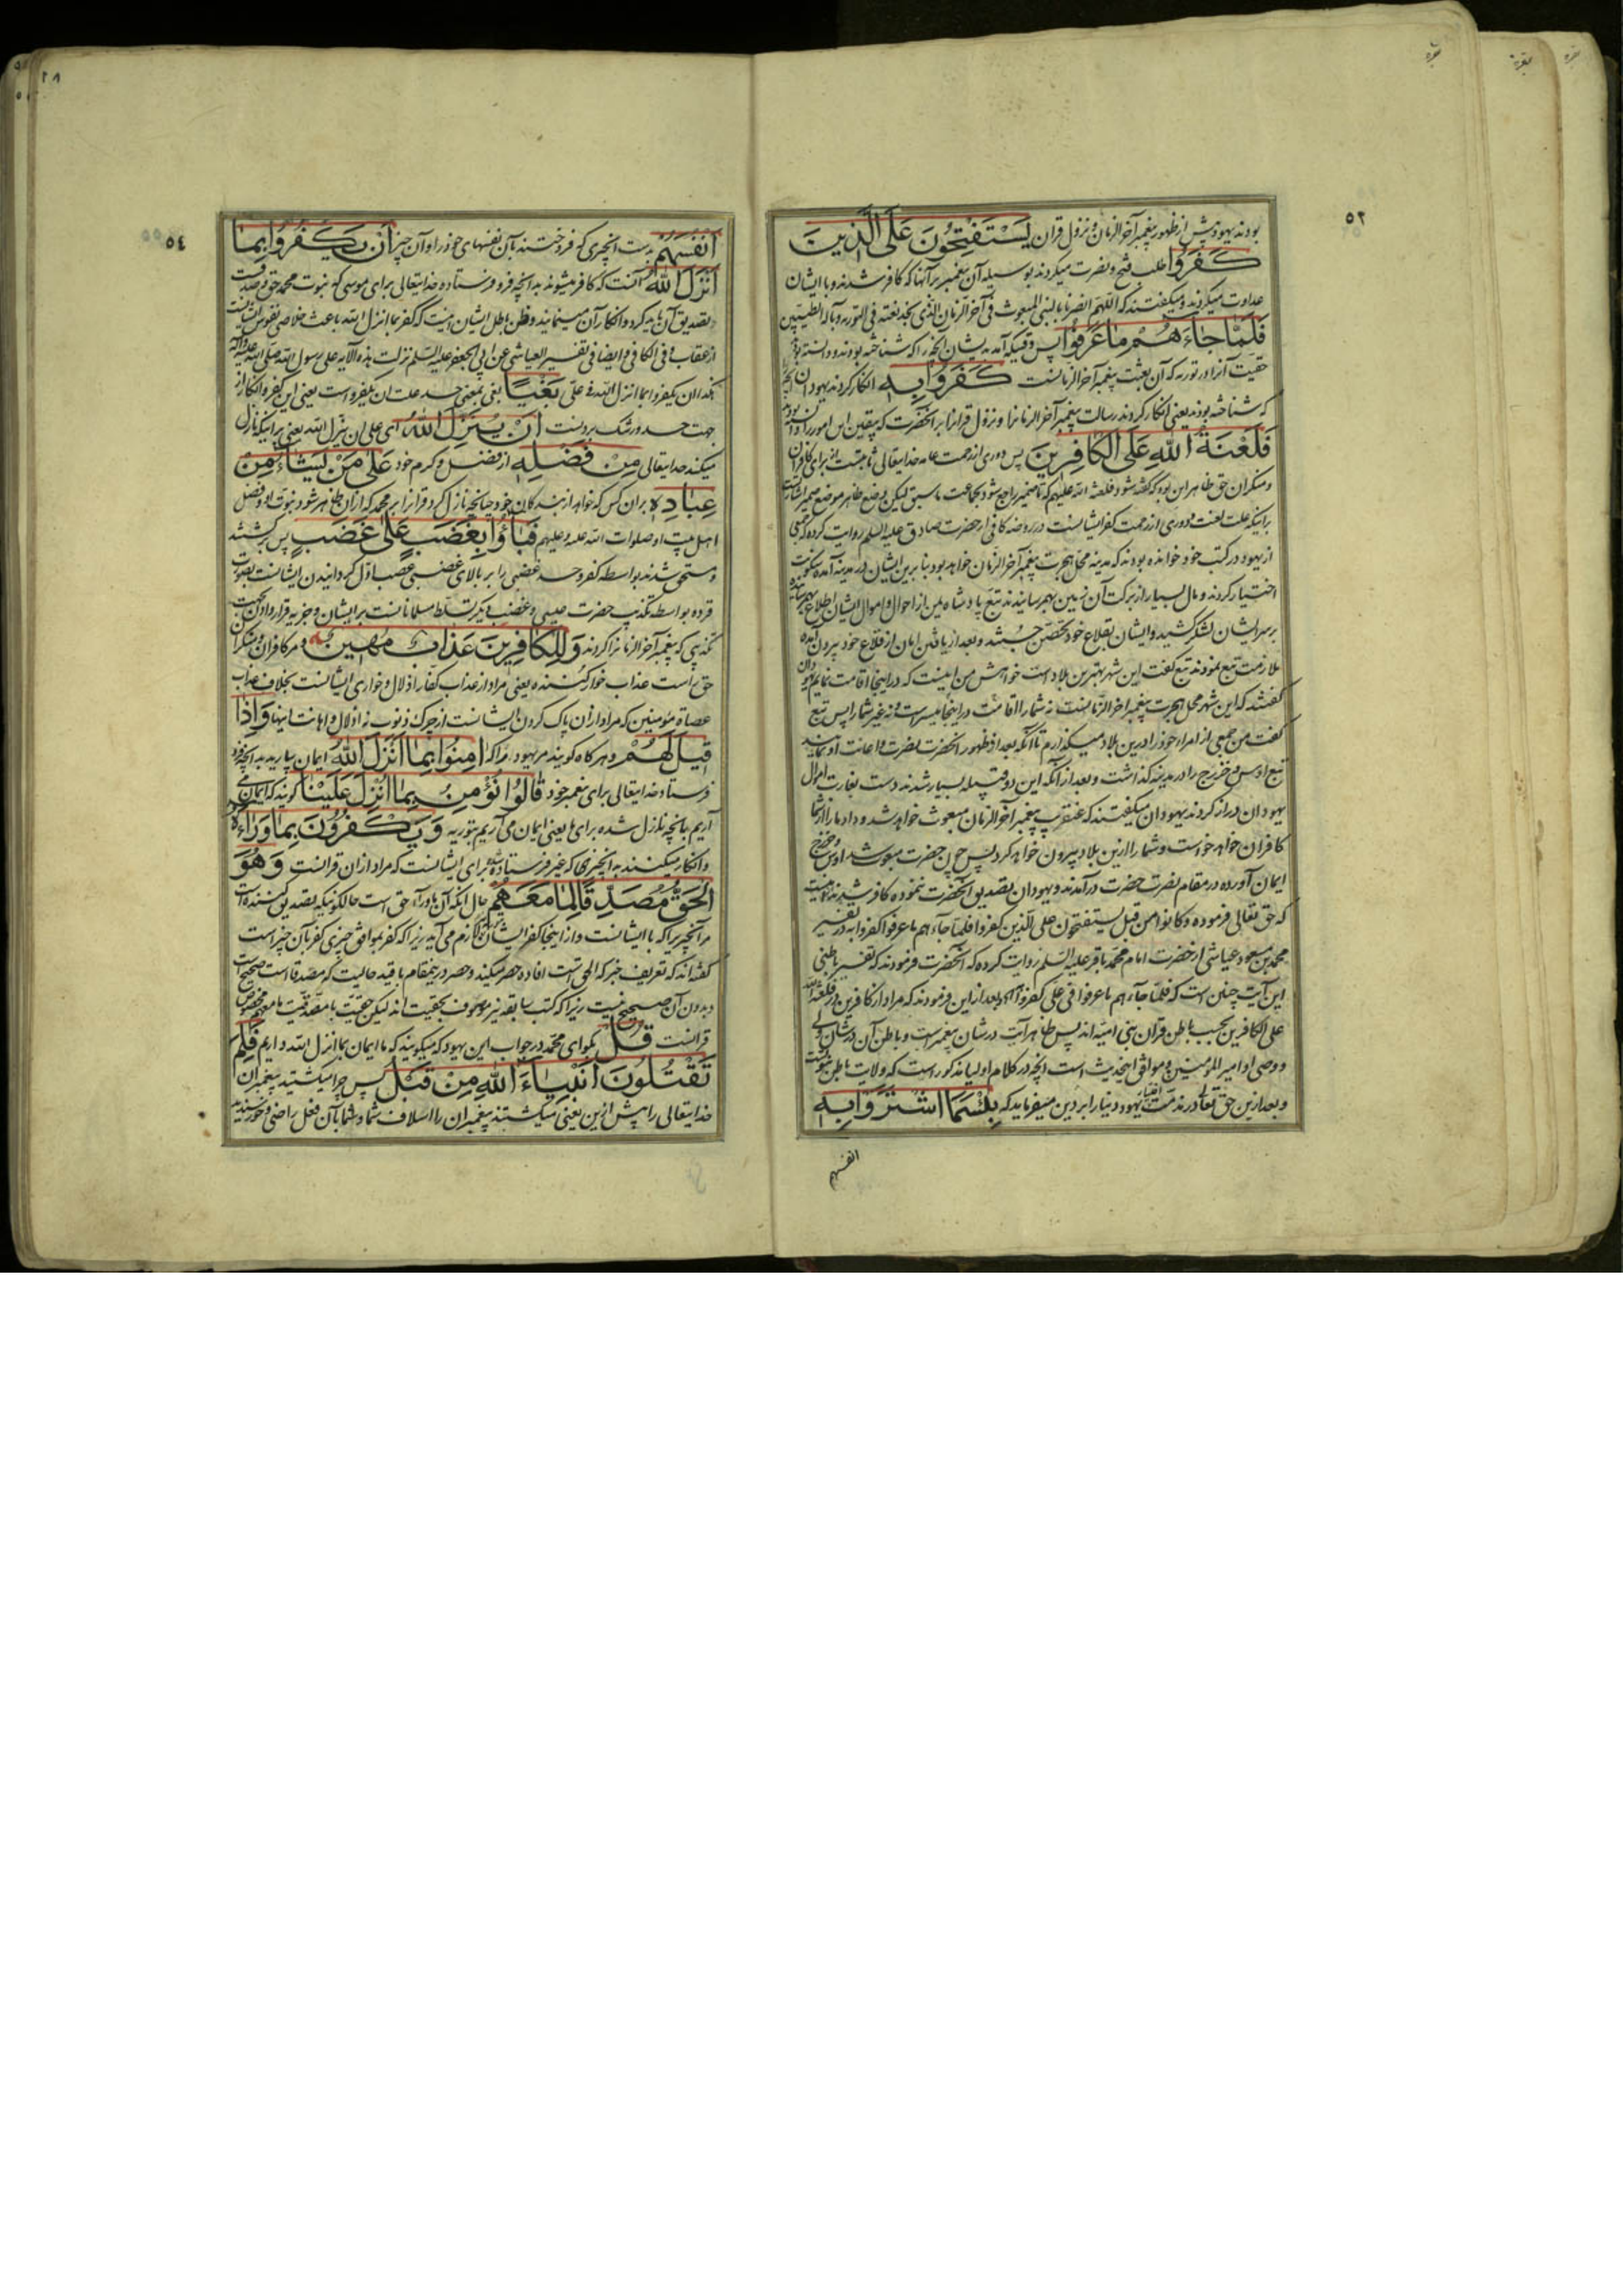 بقره
بقره
بقره
٥٢
بودند یهود پیش از ظهور پیغمبر آخر الزمان و نزول قران یَسْتَفْتِحُونَ عَلَی الَّذِینَ
كَفَرُوا طلب فتح و نصرت میکردند بوسیله آن پیغمبر بر آنها که کافر شدند و با ایشان
عداوت میکردند و میکفتند که اللهم انصرنا بالنبی المبعوث فی آخر الزمان الذی نجد نعته فی التوریه و بآله الطیبین
فَلَمَّا جَاءَهُمْ مَا عَرَفُوا پس وقتیکه آمد بدیشان آنچه را که شناخته بودند و دانسته بودند
حقیت آنرا در توریه که آن بعثت پیغمبر آخر الزمانست كَفَرُوا بِهِ انکار کردند یهودان آنچه
که شناخته بودند یعنی انکار کردند رسالت پیغمبر آخر الزمانرا و نزول قرانرا بر آنحضرت که بیقین این امور را دانسته بودند
فَلَعْنَةُ اللهِ عَلَی الْكَافِرِینَ پس دوری از رحمت عامه خدایتعالی ثابتست از برای کافران
و منکران حق ظاهر این بود که کفته شود فلعنة الله علیهم که تا ضمیر راجع شود بجماعت ما سبق لیکن وضع ظاهر موضع ضمیر اشارتست
برانیکه علت لعنت و دوری از رحمت کفر ایشانست در روضه کافی از حضرت صادق علیه السلم روایت کرده که جمعی
از یهود در کتب خود خوانده بودند که مدینه محل هجرت پیغمبر آخر الزمان خواهد بود بنابرین ایشان در مدینه آمده سکونت
اختیار کردند و مال بسیار از برکت آن زمین بهم رسانیدند تبع پادشاه یمن از احوال و اموال ایشان اطلاع بهم رسانیده
بر سر ایشان لشکر کشید و ایشان بقلاع خود تحصن جستند و بعد از یافتن امان از قلاع خود بیرون آمده
ملازمت تبع نمودند تبع کفت این شهر بهترین بلاد است خواهش من اینست که در اینجا اقامت نمایم یهودان
کفتند که این شهر محل هجرت پیغمبر آخر الزمانست نه شما را اقامت در اینجا میسر است و نه غیر شما را پس تبع
کفت من جمعی از امراء خود را درین بلاد میکذارم تا آنکه بعد از ظهور آنحضرت نصرت و اعانت او نمایند
تبع اوس و خزرج را در مدینه کذاشت و بعد از آنکه این دو قبیله بسیار شدند دست بغارت اموال
یهودان دراز کردند یهودان میکفتند که عنقریب پیغمبر آخر الزمان مبعوث خواهد شد و داد ما را از شما
کافران خواهد خواست و شما را ازین بلاد بیرون خواهد کرد پس چون حضرت مبعوث شد اوس و خزرج
ایمان آورده در مقام نصرت حضرت درآمدند و یهودان تصدیق آنحضرت ننموده کافر شدند
که حق تعالی فرموده و کانوا من قبل یستفتحون علی الذین کفروا فلما جاءهم ما عرفوا کفروا به در تفسیر
محمد بن مسعود عیاشی از حضرت امام محمد باقر علیه السلم روایت کرده که آنحضرت فرمودند که تفسیر باطنی
این آیت چنین است که فلما جاءهم ما عرفوا فی علی کفروا به بعد از این فرمودند که مراد از کافرین در فلعنة الله
علی الکافرین بحسب باطن قران بنی امیه اند پس ظاهر آیت در شان پیغمبر است و باطن آن در شان ولی
و وصی او امیر المؤمنین و موافق اینحدیث است آنچه در کلام اولیا مذکور است که ولایت باطن نبوتست
و بعد ازین حق تعالی در مذمت اختیار یهود دنیا را بر دین میفرماید که بِئْسَمَا اشْتَرَوْا بِهِ
انفسهم
٥٤
اَنْفُسَهُمْ بدست آنچیزی که فروختند بآن نفسهای خود را و آن چیز اَنْ یَكْفُرُوا بِمَا
اَنْزَلَ اللهُ آنست که کافر میشوند به آنچه فرو فرستاده خدایتعالی برای موسی که نبوت محمد حق و صدقست
و تصدیق آن باید کرد و انکار آن مینمایند و ظن باطل ایشان اینست که کفر بما انزل الله باعث خلاصی نفوس ایشانست
از عقاب و فی الکافی و ایضا فی تفسیر العیاشی عن ابی جعفر علیه السلم نزلت هذه الآیه علی رسول الله صلی الله علیه و آله
هکذا ان یکفروا بما انزل الله فی علی بَغْیًا بغی بمعنی حسد علت ان یکفروا است یعنی این کفر و انکار از
جهت حسد و رشک بردنست اَنْ یُنَزِّلَ اللهُ ای علی ان ینزل الله یعنی بر اینکه نازل
میکند خدایتعالی مِنْ فَضْلِهِ از فضل و کرم خود عَلَی مَنْ یَشَاءُ مِنْ
عِبَادِهِ بر آن کس که خواهد از بندکان خود چنانچه نازل کرد قرانرا بر محمد که از آن ظاهر شود نبوت او و فضل
اهل بیت او صلوات الله علیه و علیهم فَبَاؤُا بِغَضَبٍ عَلَی غَضَبٍ پس برکشتند
و مستحق شدند بواسطه کفر و حسد غضبی را بر بالای غضبی غضب اول کردانیدن ایشانست بصورت
قرده بواسطه تکذیب حضرت عیسی و غضب دیکر تسلط مسلمانانست بر ایشان و جزیه قرار دادن بجهت
تکذیبی که پیغمبر آخر الزمانرا کردند وَلِلْكَافِرِینَ عَذَابٌ مُهِینٌ و مر کافران و منکران
حق راست عذاب خوار کننده یعنی مراد از عذاب کفار اذلال و خواری ایشانست بخلاف عذاب
عصاة مؤمنین که مراد از آن پاک کردن ایشانست از چرک ذنوب نه اذلال و اهانت اینها وَاِذَا
قِیلَ لَهُمْ و هرکاه کویند مر یهود را که اٰمِنُوا بِمَا اَنْزَلَ اللهُ ایمان بیارید به آنچه فرو
فرستاد خدایتعالی برای پیغمبر خود قَالُوا نُؤْمِنُ بِمَا اُنْزِلَ عَلَیْنَا کویند که ایمان می
آریم بآنچه نازل شده برای ما یعنی ایمان می آریم بتوریه وَیَكْفُرُونَ بِمَا وَرَاءَهُ
و انکار میکنند به آنچیزی که غیر فرستاده شده برای ایشانست که مراد از آن قرانست وَهُوَ
الْحَقُّ مُصَدِّقًا لِمَا مَعَهُمْ حال آنکه آن ماوراء حق است حالکونیکه تصدیق کننده است
مر آنچیز را که با ایشانست و از اینجا کفر ایشان لازم می آید زیرا که کفر بموافق چیزی کفر بآن چیز است
کفته اند که تعریف خبر که الحق است افاده حصر میکند و حصر درینمقام با قید حالیت که مصدقا است صحیح است
و بدون آن صحیح نیست زیرا که کتب سابقه نیز موصوف بحقیت اند لیکن حقیت با مصدقیت ما معهم مخصوص
قرانست قُلْ بکو ای محمد در جواب این یهود که میکویند که ما ایمان بما انزل الله داریم فَلِمَ
تَقْتُلُونَ اَنْبِیَاءَ اللهِ مِنْ قَبْلُ پس چرا میکشتید پیغمبران
خدایتعالی را پیش ازین یعنی میکشتند پیغمبران را اسلاف شما و شما بآن فعل راضی و خورسندید